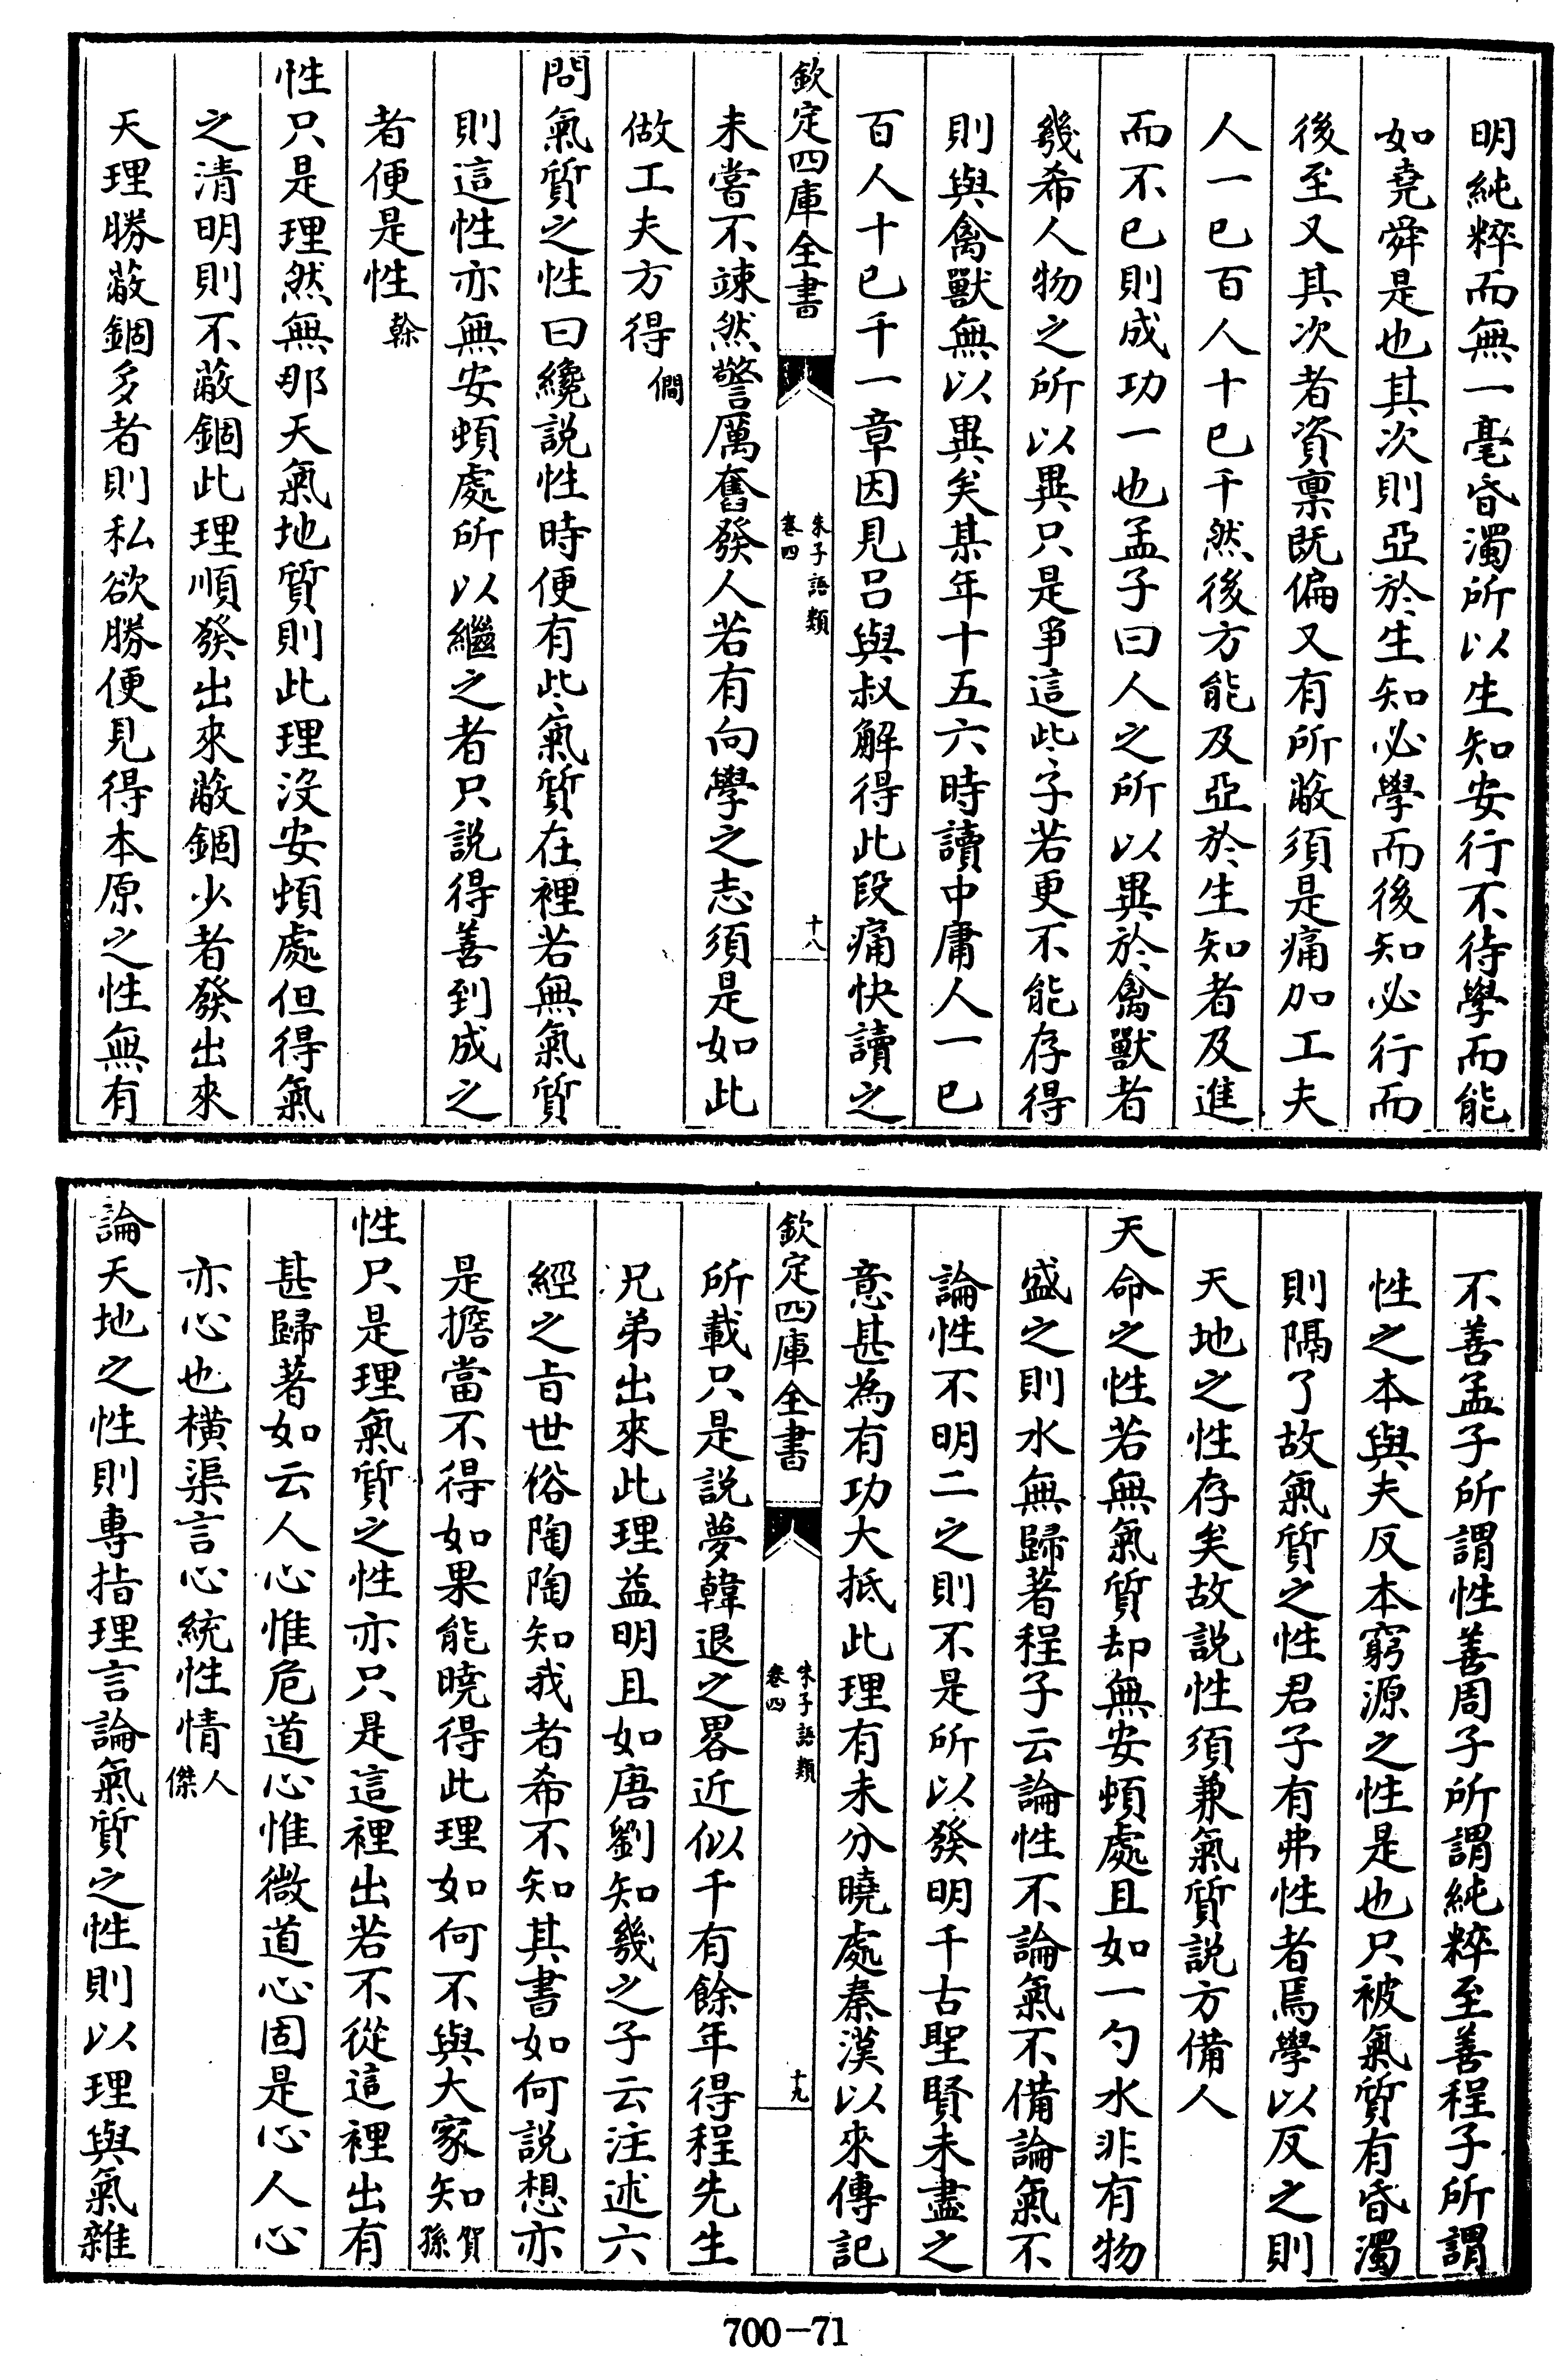 明純粹而無一毫昏濁所以生知安行不待學而能
如堯舜是也其次則亞於生知必學而後知必行而
後至又其次者資稟既偏又有所蔽須是痛加工夫
人一已百人十已千然後方能及亞於生知者及進
而不已則成功一也孟子曰人之所以異於禽獸者
幾希人物之所以異只是爭這些子若更不能存得
則與禽獸無以異矣某年十五六時讀中庸人一已
百人十已千一章因見呂與叔解得此段痛快讀之
欽定四庫全書
朱子語類
卷四
十八
未嘗不竦然警厲奮發人若有向學之志須是如此
做工夫方得 僩
問氣質之性曰纔説性時便有些氣質在裡若無氣質
則這性亦無安頓處所以繼之者只説得善到成之
者便是性 榦
性只是理然無那天氣地質則此理沒安頓處但得氣
之清明則不蔽錮此理順發出來蔽錮少者發出來
天理勝蔽錮多者則私欲勝便見得本原之性無有
不善孟子所謂性善周子所謂純粹至善程子所謂
性之本與夫反本窮源之性是也只被氣質有昏濁
則隔了故氣質之性君子有弗性者焉學以反之則
天地之性存矣故説性須兼氣質説方備人
天命之性若無氣質却無安頓處且如一勺水非有物
盛之則水無歸著程子云論性不論氣不備論氣不
論性不明二之則不是所以發明千古聖賢未盡之
意甚為有功大抵此理有未分曉處秦漢以來傳記
欽定四庫全書
朱子語類
卷四
十九
所載只是説夢韓退之畧近似千有餘年得程先生
兄弟出來此理益明且如唐劉知幾之子云注述六
經之旨世俗陶陶知我者希不知其書如何説想亦
是擔當不得如果能曉得此理如何不與大家知 賀孫
性只是理氣質之性亦只是這裡出若不從這裡出有
甚歸著如云人心惟危道心惟微道心固是心人心
亦心也橫渠言心統性情 人傑
論天地之性則專指理言論氣質之性則以理與氣雜
700-71